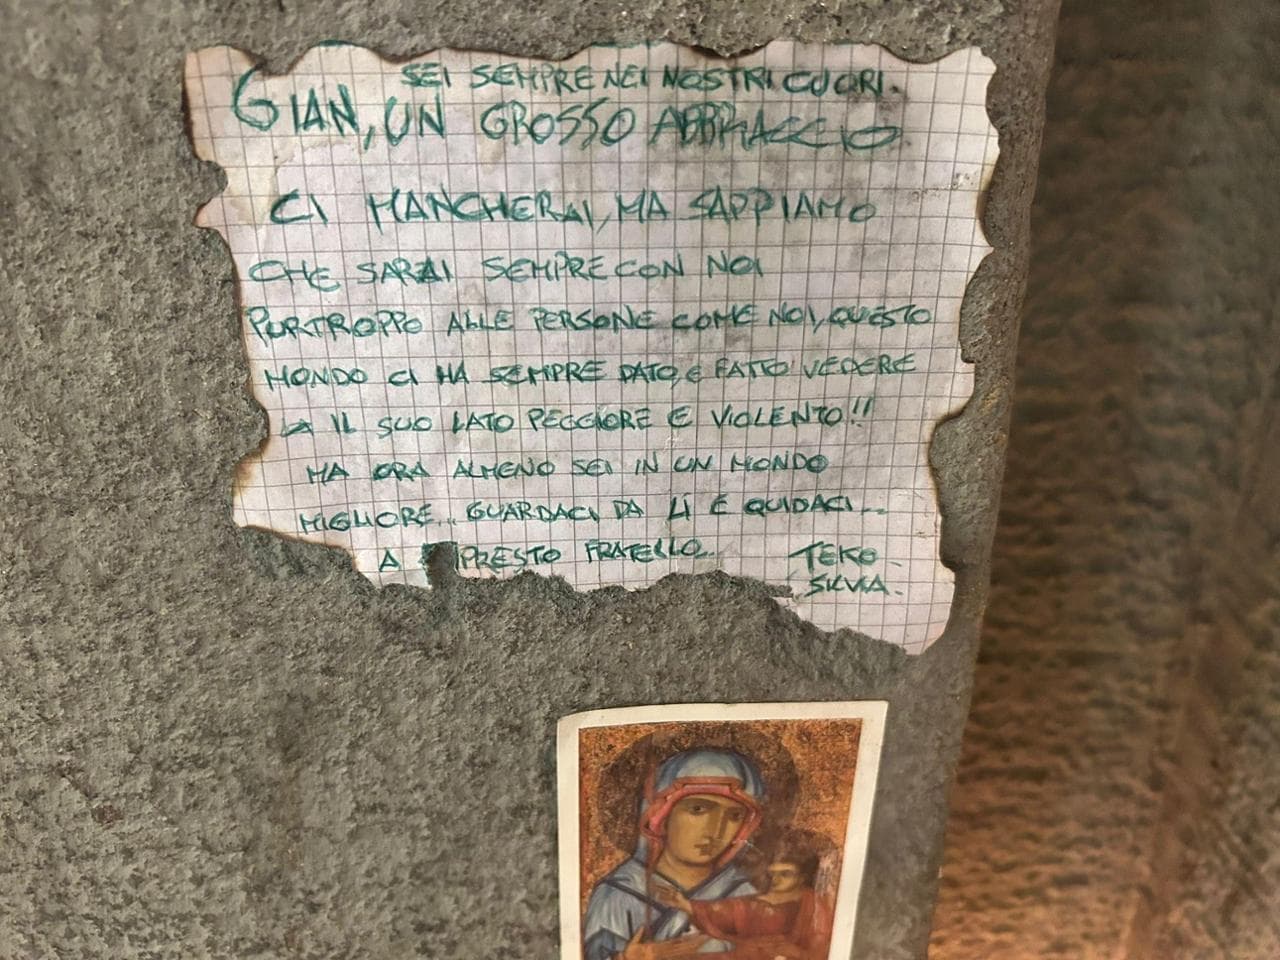 SEI SEMPRE NEI NOSTRI CUORI.
GIAN, UN GROSSO ABBRACCIO
CI MANCHERAI, MA SAPPIAMO
CHE SARAI SEMPRE CON NOI
PURTROPPO ALLE PERSONE COME NOI, QUESTO
MONDO CI HA SEMPRE DATO, E FATTO VEDERE
IL SUO LATO PEGGIORE E VIOLENTO!!
MA ORA ALMENO SEI IN UN MONDO
MIGLIORE... GUARDACI DA LÍ E GUIDACI...
A PRESTO FRATELLO... TEKO.
SILVIA.